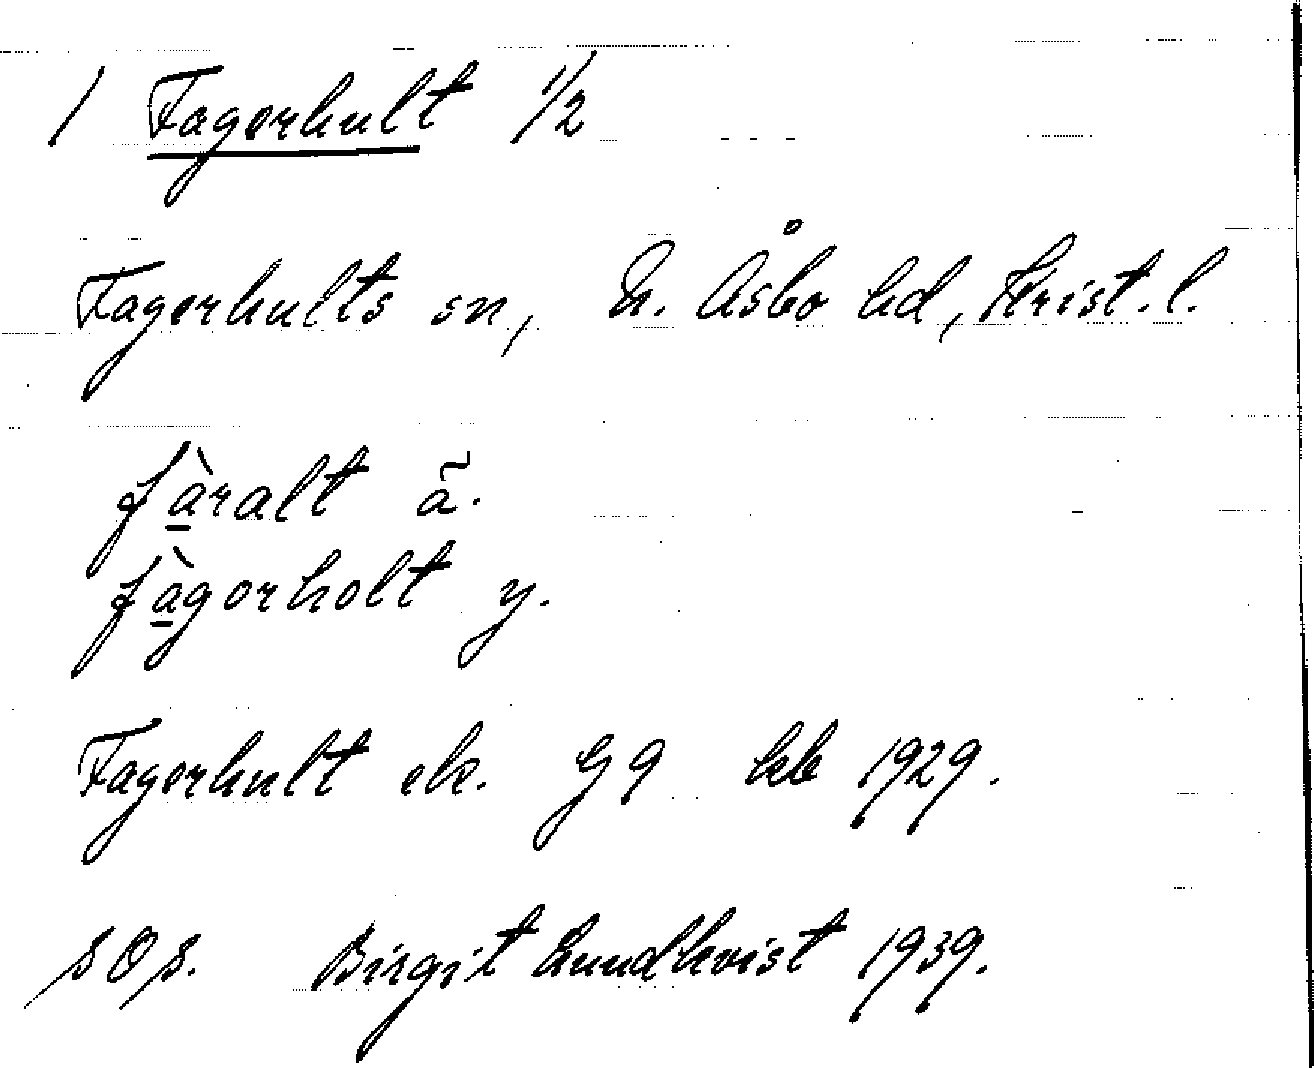 1 Fagerhult 1/2
Fagerhults sn, N. Åsbo hd, Krist. l.
fà̱ralt ä̃.
fà̱gorholt y.
Fagerhult ek. G9 kb 1929.
SOP. Birgit Lundkvist 1939.